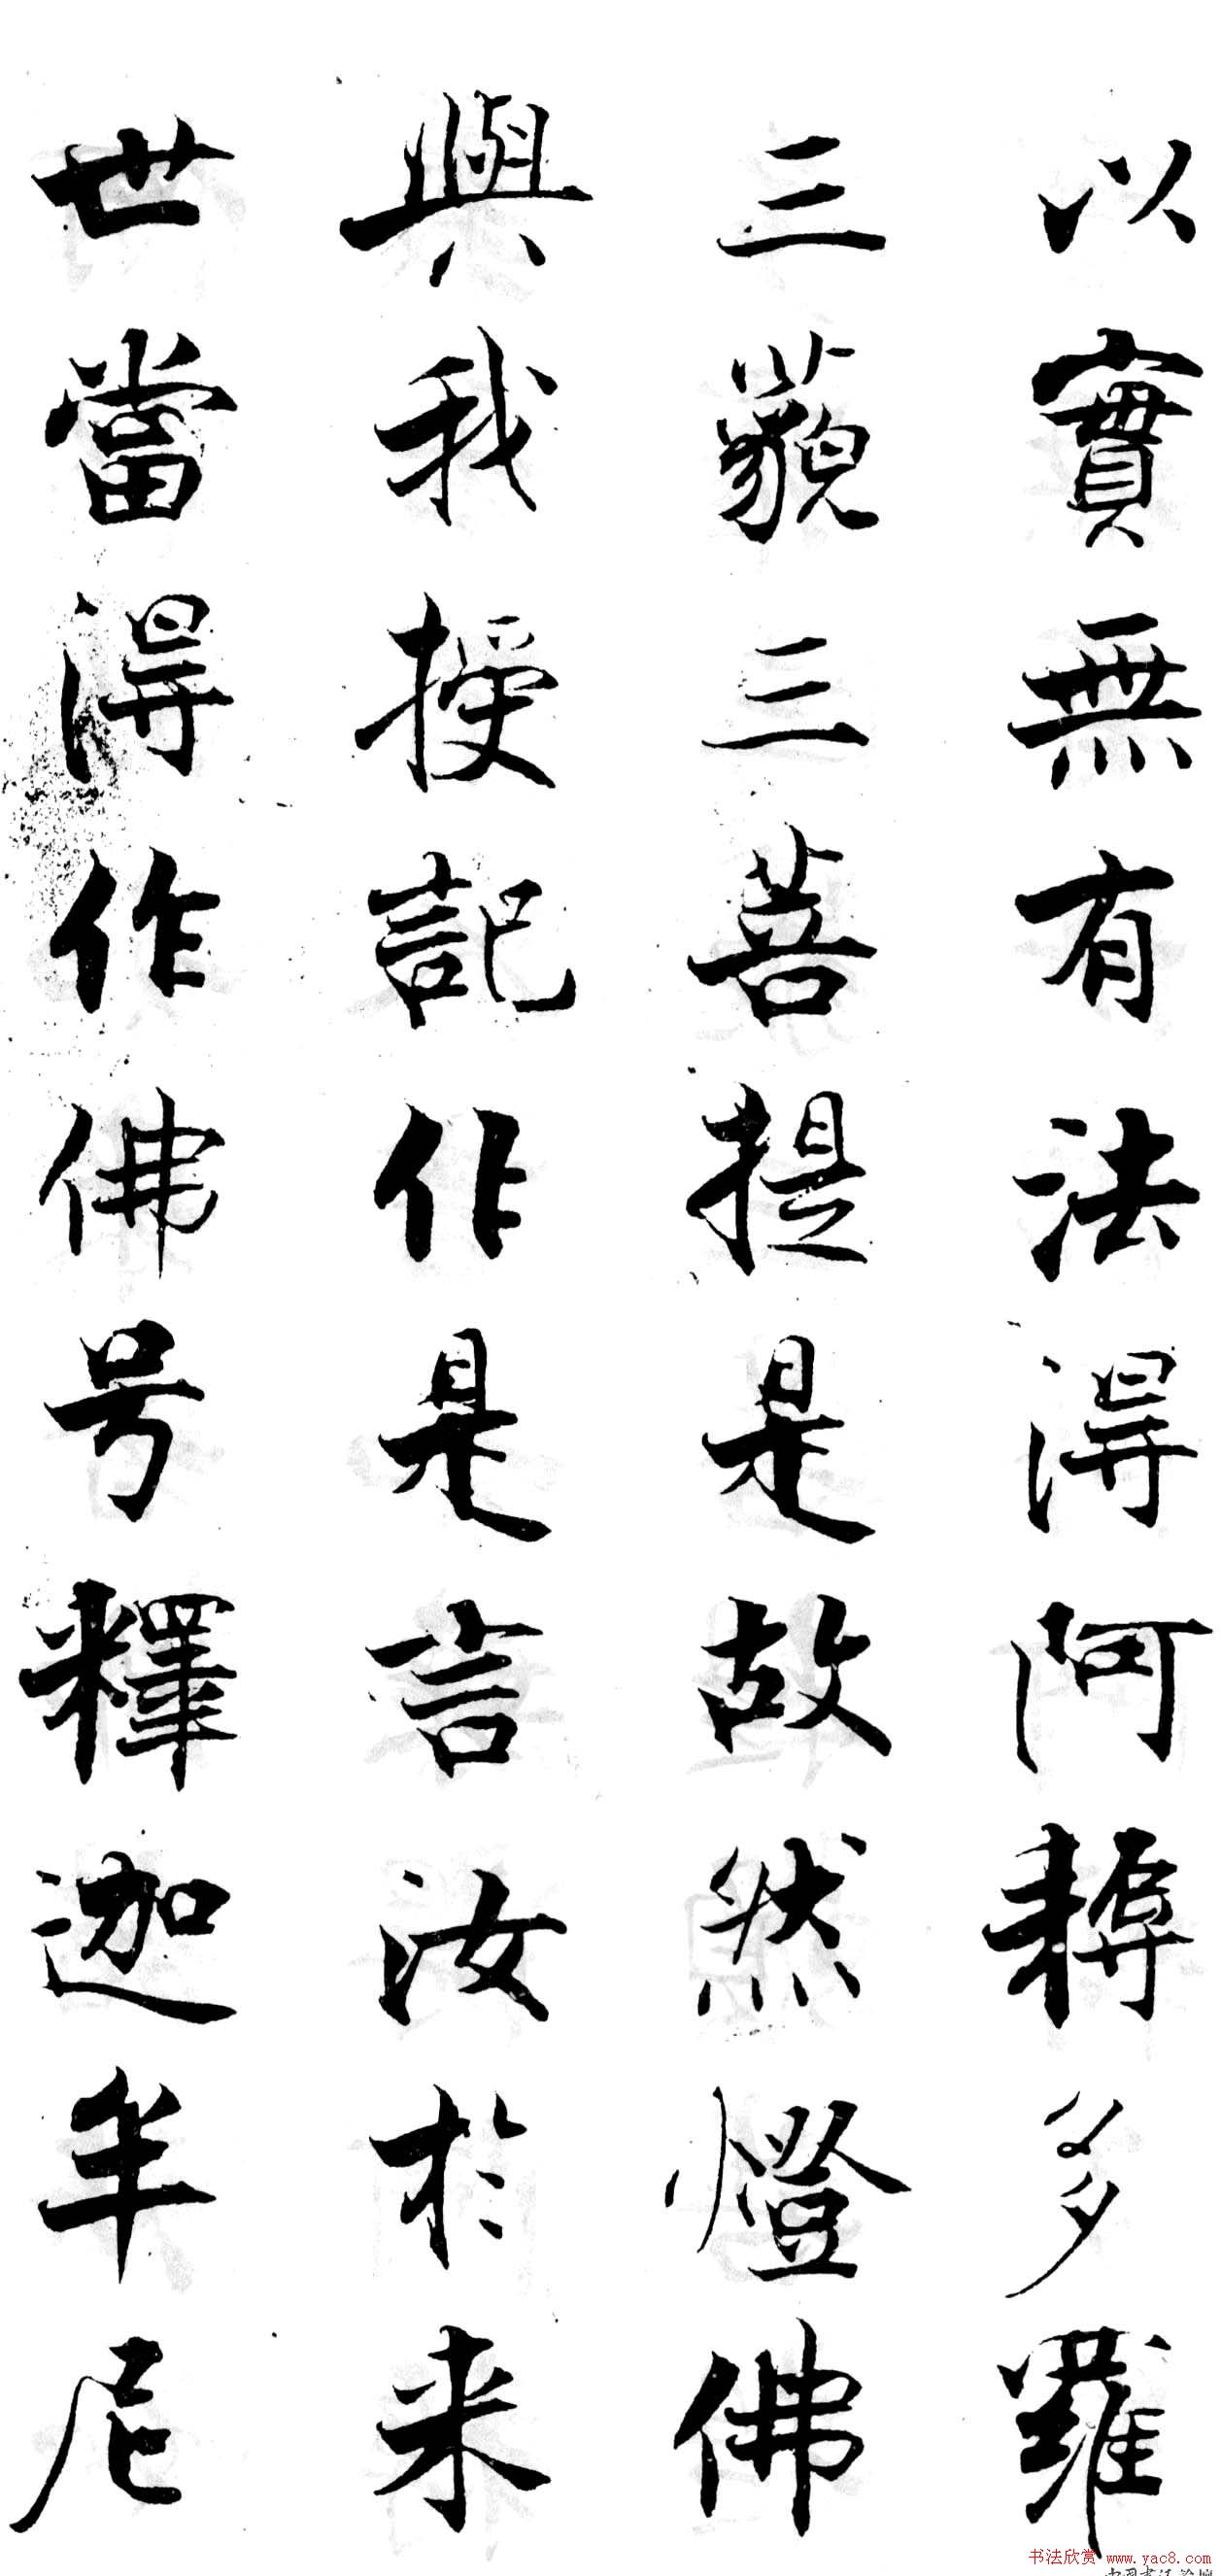 以實無有法得阿耨多羅
三藐三菩提是故然燈佛
與我授記作是言汝於来
世當得作佛号釋迦牟尼
书法欣赏 www.yac8.com